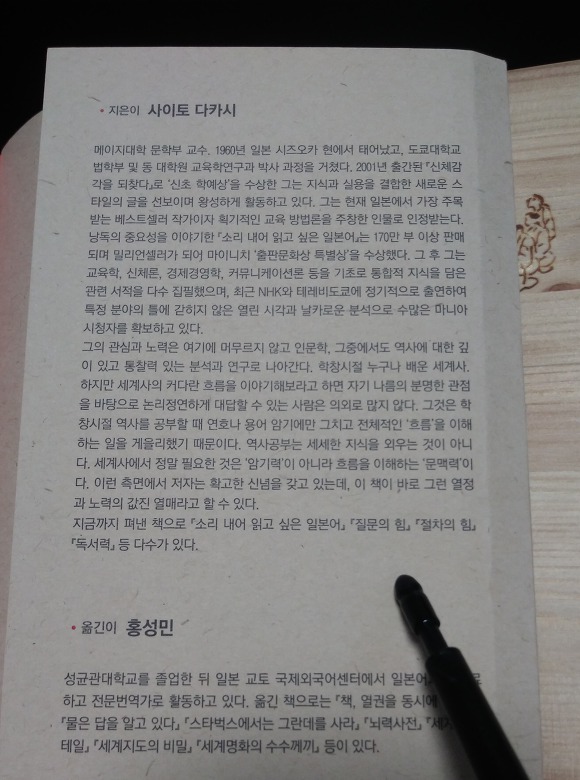 • 지은이 사이토 다카시
메이지대학 문학부 교수. 1960년 일본 시즈오카 현에서 태어났고, 도쿄대학교
법학부 및 동 대학원 교육학연구과 박사 과정을 거쳤다. 2001년 출간된 『신체감
각을 되찾다』로 '신초 학예상'을 수상한 그는 지식과 실용을 결합한 새로운 스
타일의 글을 선보이며 왕성하게 활동하고 있다. 그는 현재 일본에서 가장 주목
받는 베스트셀러 작가이자 획기적인 교육 방법론을 주창한 인물로 인정받는다.
낭독의 중요성을 이야기한 『소리 내어 읽고 싶은 일본어』는 170만 부 이상 판매
되며 밀리언셀러가 되어 마이니치 '출판문화상 특별상'을 수상했다. 그 후 그는
교육학, 신체론, 경제경영학, 커뮤니케이션론 등을 기초로 통합적 지식을 담은
관련 서적을 다수 집필했으며, 최근 NHK와 테레비도쿄에 정기적으로 출연하여
특정 분야의 틀에 갇히지 않은 열린 시각과 날카로운 분석으로 수많은 마니아
시청자를 확보하고 있다.
그의 관심과 노력은 여기에 머무르지 않고 인문학, 그중에서도 역사에 대한 깊
이 있고 통찰력 있는 분석과 연구로 나아간다. 학창시절 누구나 배운 세계사.
하지만 세계사의 커다란 흐름을 이야기해보라고 하면 자기 나름의 분명한 관점
을 바탕으로 논리정연하게 대답할 수 있는 사람은 의외로 많지 않다. 그것은 학
창시절 역사를 공부할 때 연호나 용어 암기에만 그치고 전체적인 '흐름'을 이해
하는 일을 게을리했기 때문이다. 역사공부는 세세한 지식을 외우는 것이 아니
다. 세계사에서 정말 필요한 것은 '암기력'이 아니라 흐름을 이해하는 '문맥력'이
다. 이런 측면에서 저자는 확고한 신념을 갖고 있는데, 이 책이 바로 그런 열정
과 노력의 값진 열매라고 할 수 있다.
지금까지 펴낸 책으로 『소리 내어 읽고 싶은 일본어』 『질문의 힘』 『절차의 힘』
『독서력』 등 다수가 있다.
• 옮긴이 홍성민
성균관대학교를 졸업한 뒤 일본 교토 국제외국어센터에서
하고 전문번역가로 활동하고 있다. 옮긴 책으로는 『책, 열권을 동시에
『물은 답을 알고 있다』 『스타벅스에서는 그란데를 사라』 『뇌력사전』
테일』 『세계지도의 비밀』 『세계명화의 수수께끼』 등이 있다.